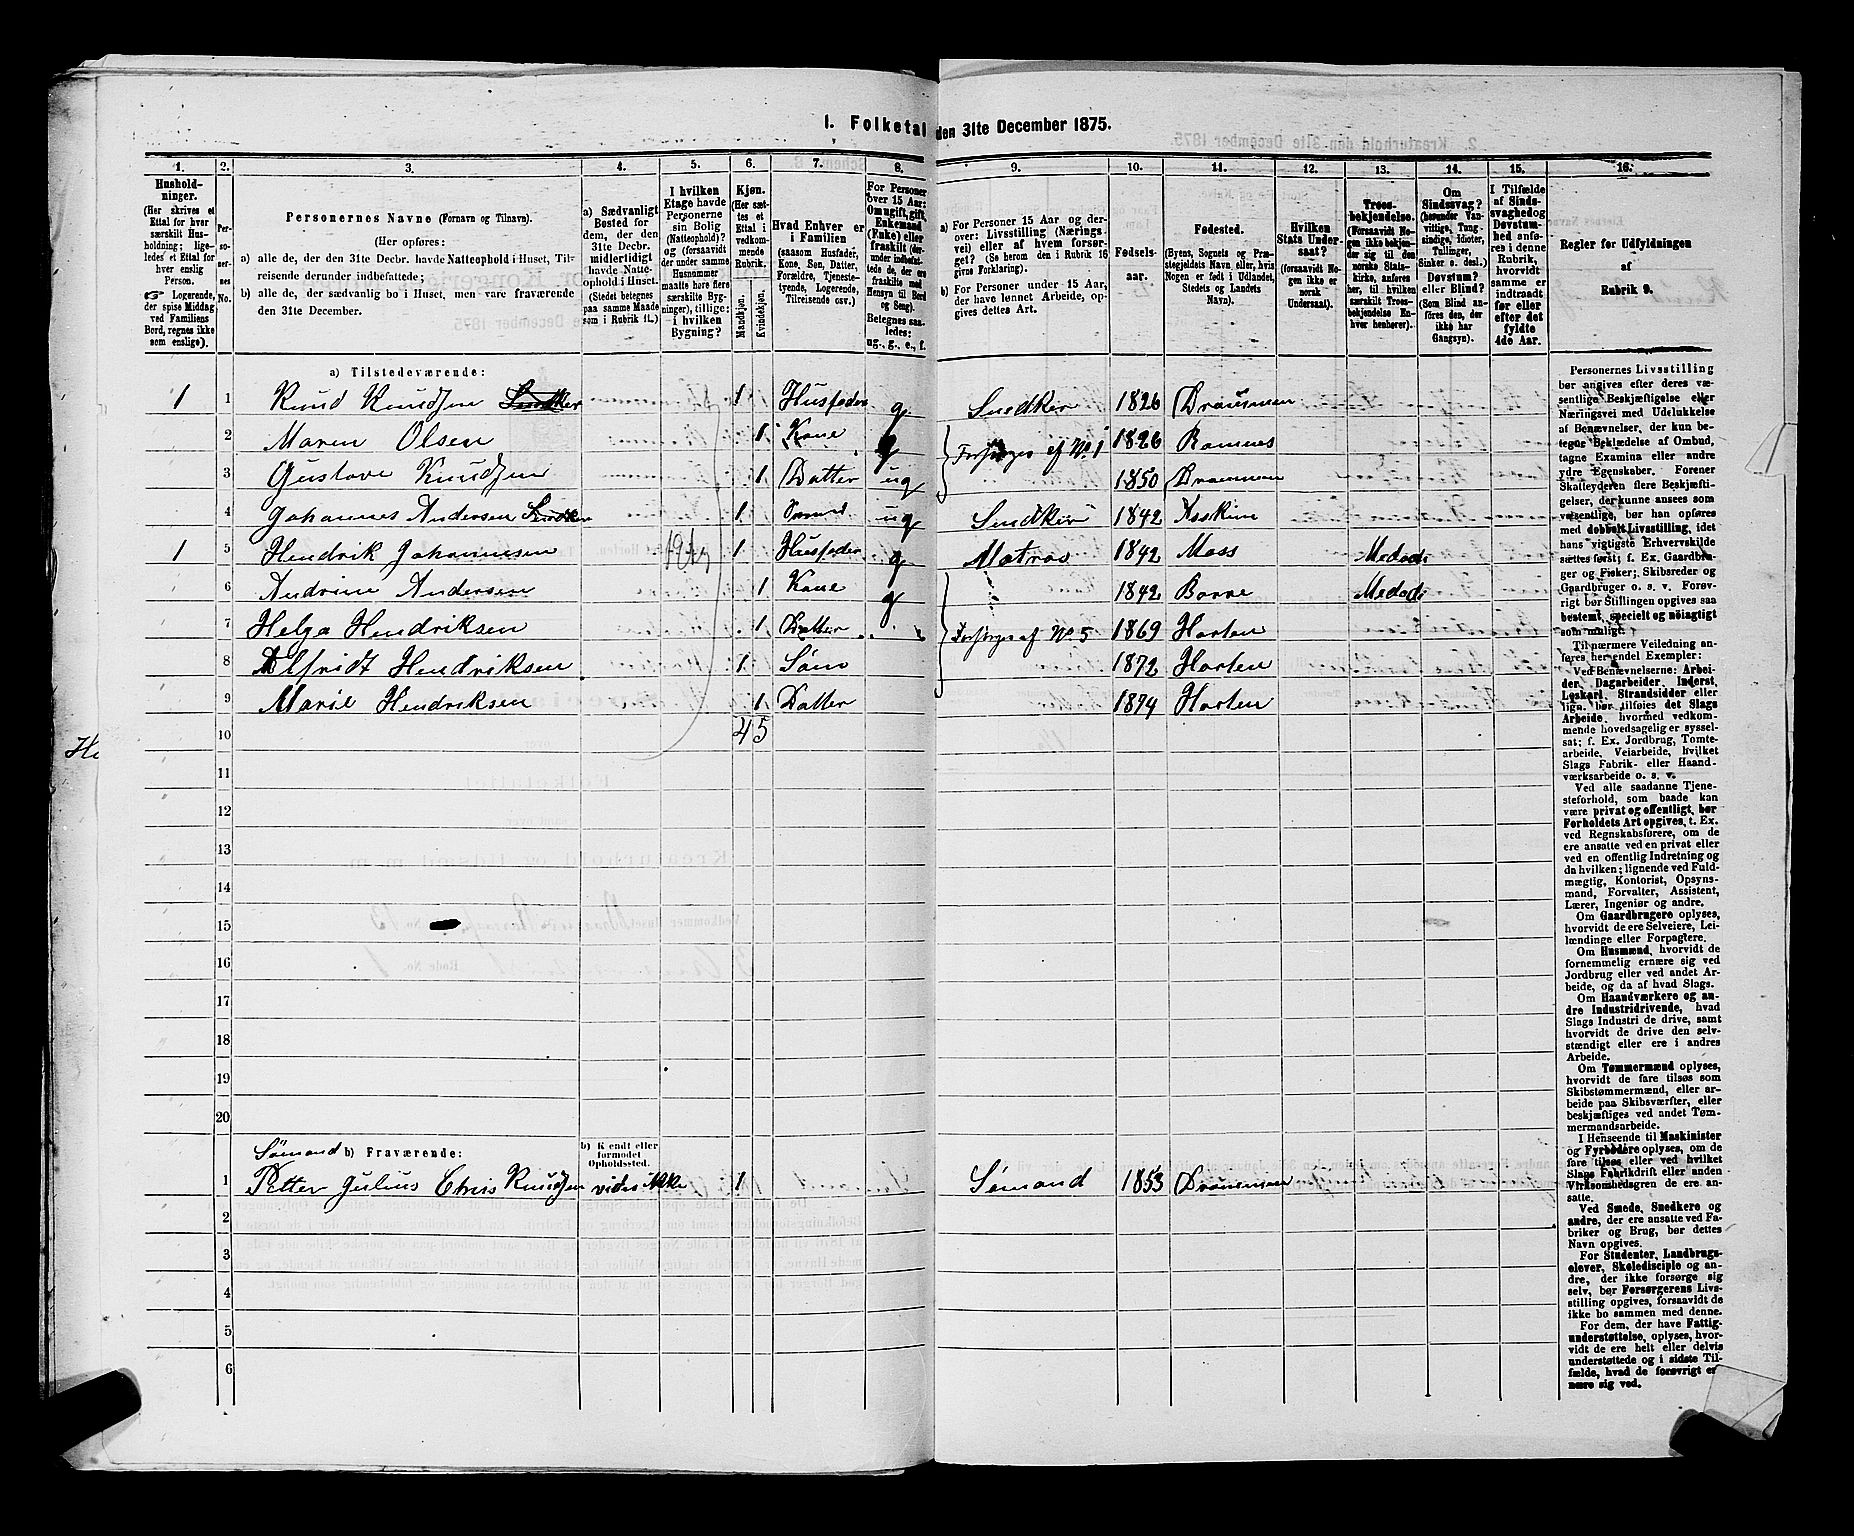 I. Folketal den 31te December 1875.
1. 2. 3. 4. 5. 6. 7. 8. 9. 10. 11. 12. 13. 14. 15. 16.
Husholdninger.
(Her skrives et
Ettal for hver
særskilt Husholdning;
ligeledes et Ettal for
hver enslig
Person.
☞ Logerende,
der spise Middag
ved Familiens
Bord, regnes ikke
som enslige).
Personernes No.
Personernes Navne (Fornavn og Tilnavn).
(Her opføres:
a) alle de, der den 31te Decbr. havde Natteophold i Huset, Tilreisende derunder indbefattede;
b) alle de, der sædvanlig bo i Huset, men vare fraværende
den 31te December.
a) Sædvanligt
Bosted for
dem, der den
31te Decbr.
midlertidigt
havde Natteophold i Huset.
(Stedet betegnes
paa samme Maade
som i Rubrik 11.)
I hvilken
Etage havde
Personerne
sin Bolig
(Natteophold)?
og (forsaavidt
der under samme
Husnummer
maatte høre flere
særskilte Bygninger), tillige:
i hvilken
Bygning?
Kjøn.
(Her sættes et
Ettal i
vedkommende
Rubrik.
Mandkjøn.
Kvindekjøn.
Hvad Enhver er
i Familien
(saasom Husfader,
Kone, Søn, Datter,
Forældre, Tjenestetyende, Logerende,
Tilreisende osv.)
For Personer
over 15 Aar:
Om ugift, gift,
Enkemand
(Enke) eller
fraskilt
Hensyn til Bord
og Seng).
Betegnes saaledes:
ug., g., e., f.
a) For Personer 15 Aar og derover: Livsstilling (Næringsvei) eller af hvem forsørget? (Se herom den i Rubrik 16
givne Forklaring).
b) For Personer under 15 Aar,
der have lønnet Arbeide, opgives dettes Art.
Fødselsaar.
Fødested.
(Byens, Sognets og Præstegjeldets Navn, eller, hvis
Nogen er født i Udlandet,
Stedets og Landets
Navn).
Hvilken
Stats Undersaat?
(forsaavidt Nogen ikke er
norsk
Undersaat).
Troesbekjendelse.
(Forsaavidt Nogen ikke bekjender sig til den
norske Statskirke, anføres
her, til hvilken
særskilt Troesbekjendelse Enhver henhører).
Om
Sindssvag?
(herunder Vanvittige, Tungsindige, Idioter,
Tullinger,
Sinker o. desl.)
Døvstum?
eller Blind?
(Som Blind anføres den, der
ikke har
Gangsyn).
I Tilfælde
af Sindssvaghed og
Døvstumhed anføres i denne
Rubrik,
hvorvidt
samme er
indtraadt
før eller
efter det
fyldte
4de Aar.
Regler for Udfyldningen
af
Rubrik 9.
a) Tilstedeværende:
1 1 Knud Knudsen Snedker 1 Husfader g Snedker 1826 Drammen
2 Maren Olsen 1 Kone g Forsørges af No. 1 1826 Ramnes
3 Gustave Knudsen 1 Datter ug 1850 Drammen
4 Johannes Andersen Snedker 1 ug Snedker 1842 Asskim
1 5 Hendrik Johannesen 1 Husfader g Matros 1842 Moss Medodi
6 Andrine Andersen 1 Kone g 1842 Borre Medodi
7 Helga Hendriksen 1 Datter Forsørges af No. 5 1869 Horten
8 Alfridt Hendriksen 1 Søn 1872 Horten
9 Marie Hendriksen 1 Datter 1874 Horten
10 4 5
11
12
13
14
15
16
17
18
19
20
Sømand b) Fraværende: b) Kjendt eller
formodet
Opholdssted.
1 Petter Julius Chris Knudsen vides ikke 1 Sømand 1853 Drammen
2
3
4
5
6
Personernes Livsstilling
bør angives efter deres væsentlige Beskjæftigelse eller
Næringsvei med Udelukkelse
af Benævnelser, der kun betegne Beklædelse af Ombud,
tagne Examina eller andre
ydre Egenskaber. Forener
Skatteyderen flere Beskjæftigelser, der kunne ansees som
væsentlige, bør han opføres
med dobbelt Livsstilling, idet
hans vigtigste Erhvervskilde
sættes først; f. Ex. Gaardbruger og Fisker; Skibsreder og
Gaardbruger o. s. v. Forøvrigt bør Stillingen opgives saa
bestemt, specielt og nøiagtigt
som muligt.
Til nærmere Veiledning anføres her endel Exempler:
Ved Benævnelserne: Arbeider, Dagarbeider, Inderst,
Løskarl, Strandsidder eller
lign. bør tilføies det Slags
Arbeide, hvormed vedkommende hovedsagelig er sysselsat; f. Ex. Jordbrug, Tomtearbeide, Veiarbeide, hvilket
Slags Fabrik- eller Haandværksarbeide o. s. v.
Ved alle saadanne Tjenesteforhold, som baade kan
være privat og offentligt, bør
Forholdets Art opgives, t. Ex.
ved Regnskabsførere, om de
ere ansatte ved en privat eller
ved en offentlig Indretning og
da hvilken; lignende ved Fuldmægtig, Kontorist, Opsynsmand, Forvalter, Assistent,
Lærer, Ingeniør og andre.
Om Gaardbrugere oplyses,
hvorvidt de ere Selveiere, Leilændinge eller Forpagtere.
Om Husmænd, hvorvidt de
fornemmelig ernære sig ved
Jordbrug eller ved andet Arbeide, og da af hvad Slags.
Om Haandværkere og andre Industridrivende, hvad
Slags Industri de drive, samt
hvorvidt de drive den selvstændigt eller ere i andres
Arbeide.
Om Tømmermænd oplyses,
hvorvidt de fare tilsøs som
Skibstømmermænd, eller arbeide paa Skibsværfter, eller
beskjæftiges ved andet Tømmermandsarbeide.
I Henseende til Maskinister
og Fyrbødere oplyses, om de
fare tilsøs eller ved hvilket
Slags Fabrikdrift eller anden
Virksomhedsgren de ere ansatte.
Ved Smede, Snedkere og
andre, der ere ansatte ved Fabriker og Brug, bør dettes
Navn opgives.
For Studenter, Landbrugselever, Skoledisciple og andre, der ikke forsørge sig
selv, bør Forsørgerens Livsstilling opgives, forsaavidt de
ikke bo sammen med denne.
For dem, der have Fattigunderstøttelse, oplyses, hvorvidt de ere helt eller delvis
understøttede og i sidste Tilfælde, hvad de forøvrigt ernære sig ved.